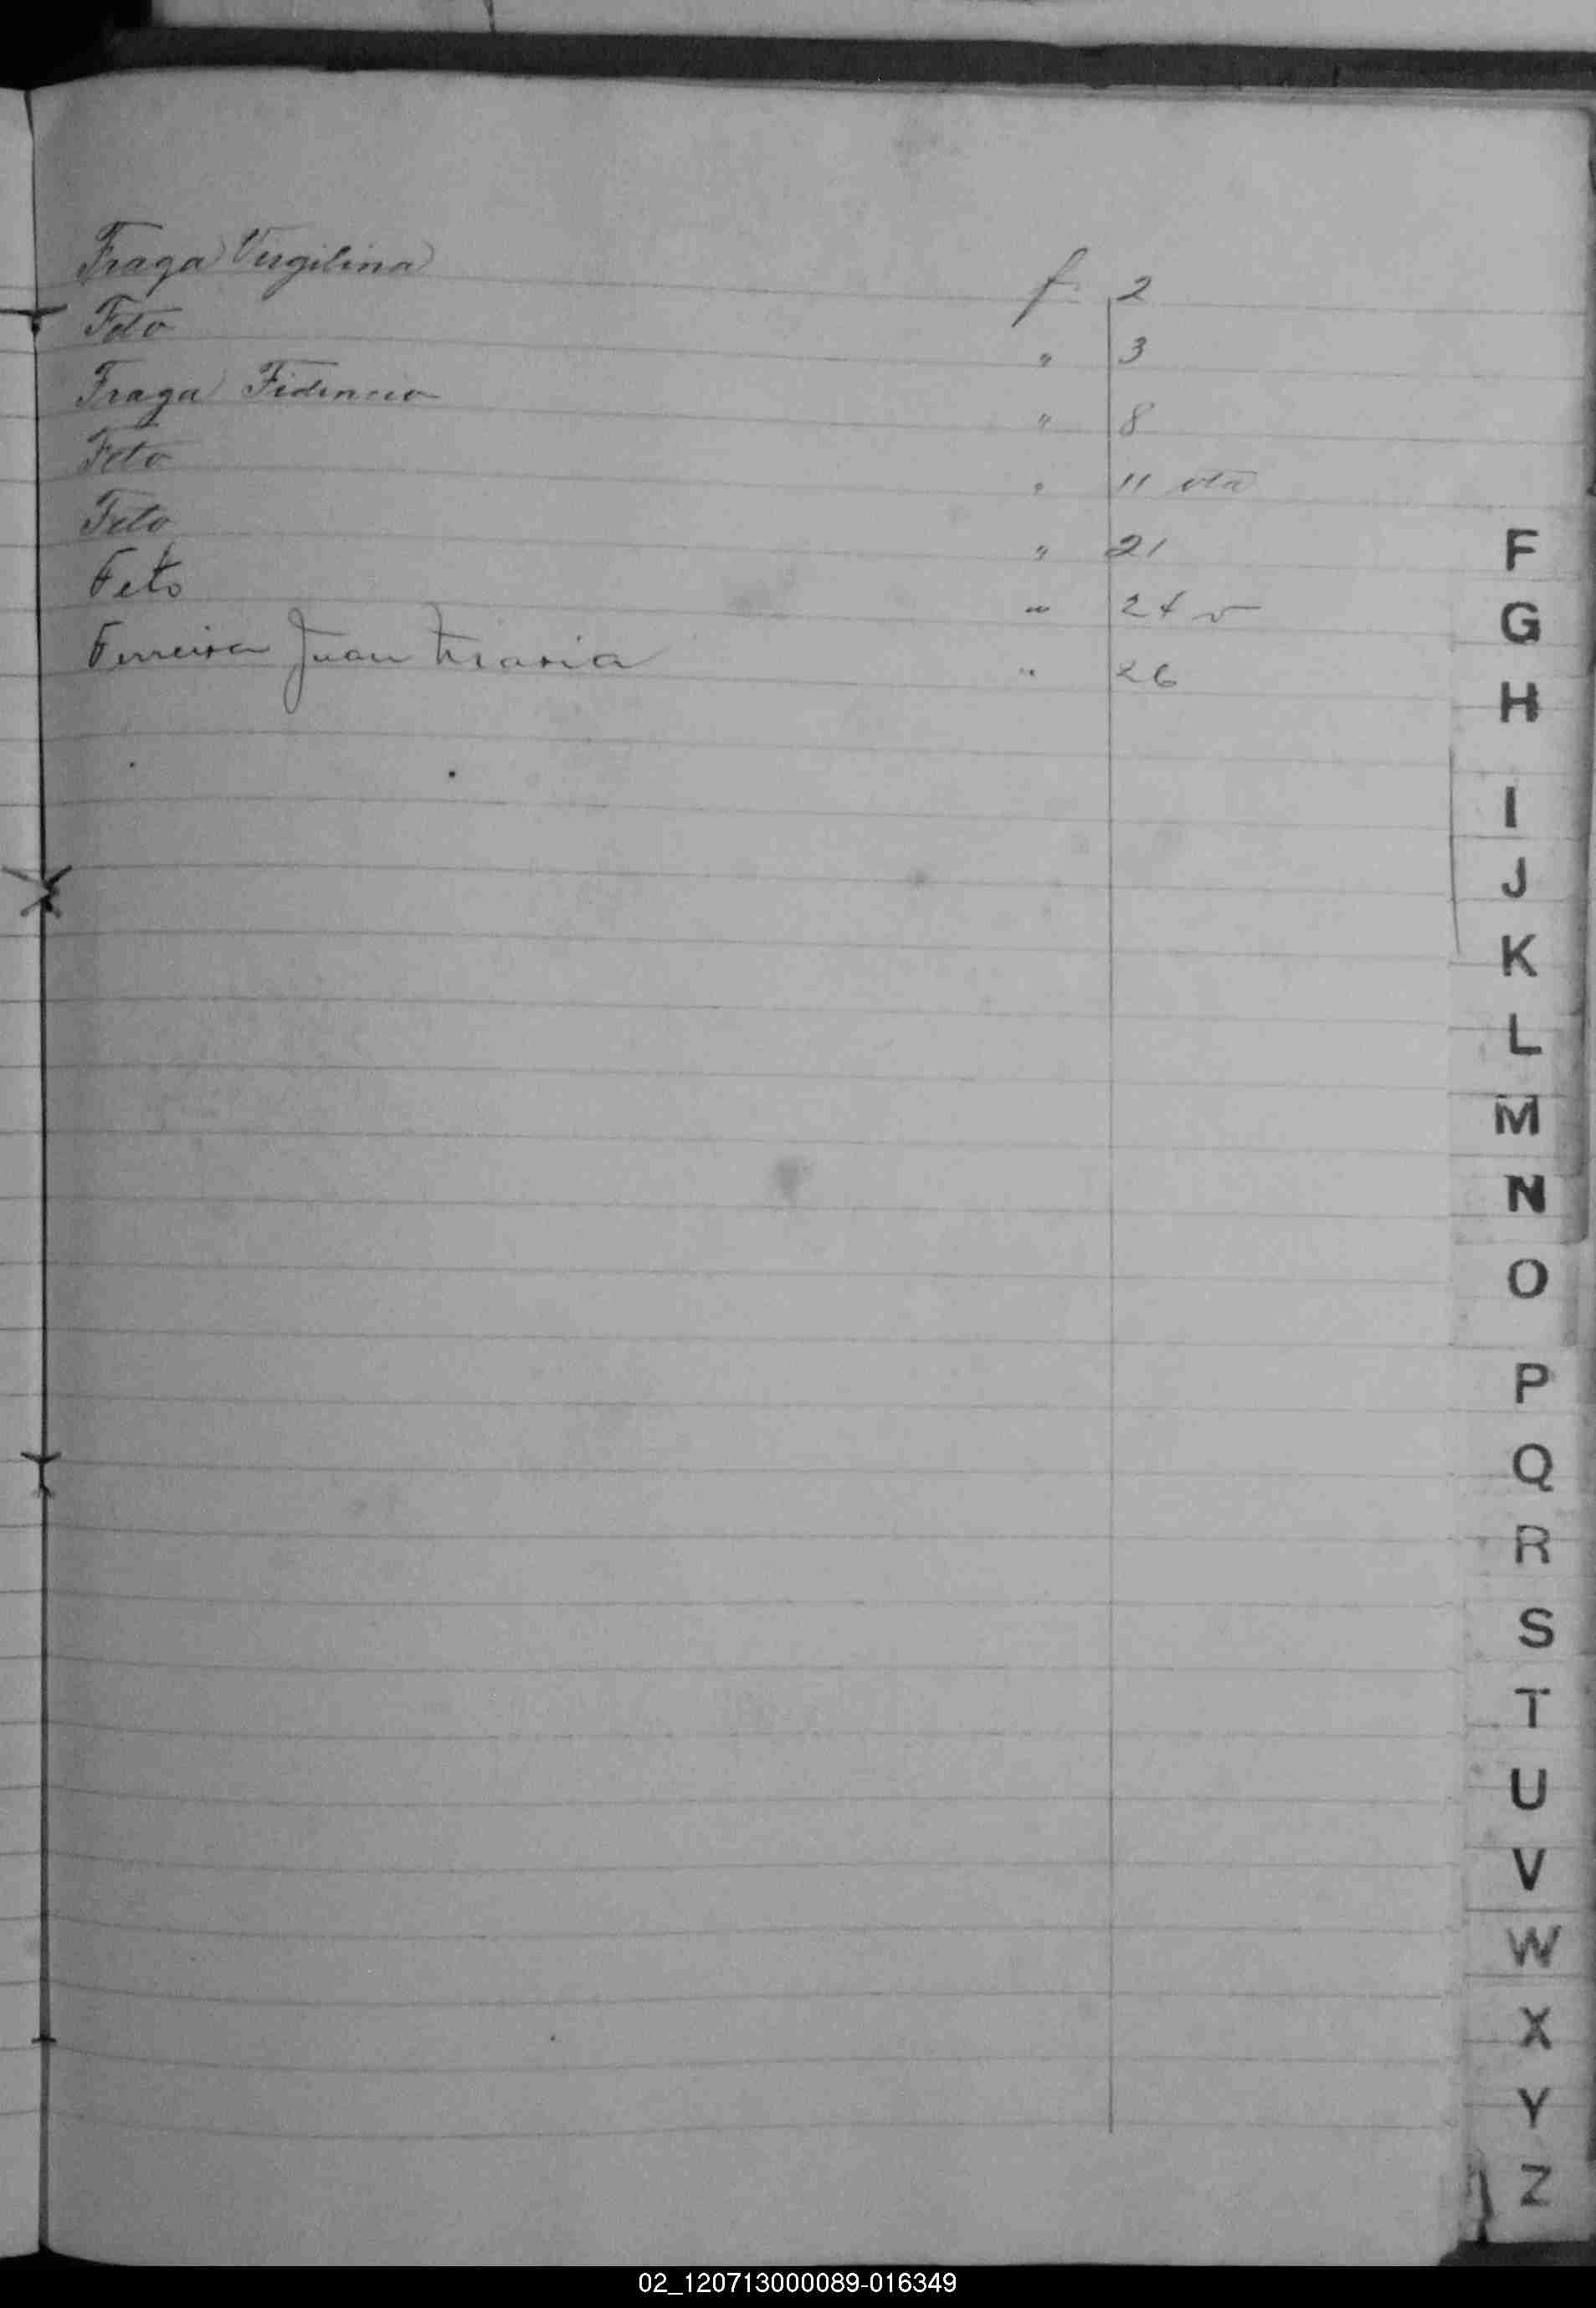 Fraga Virgilina f. 2
Feto " 3
Fraga Fidencio " 8
Feto " 11 vta
Feto " 21
Feto " 24 v
Ferreira Juan Maria " 26
F
G
H
I
J
K
L
M
N
O
P
Q
R
S
T
U
V
W
X
Y
Z
02_120713000089-016349